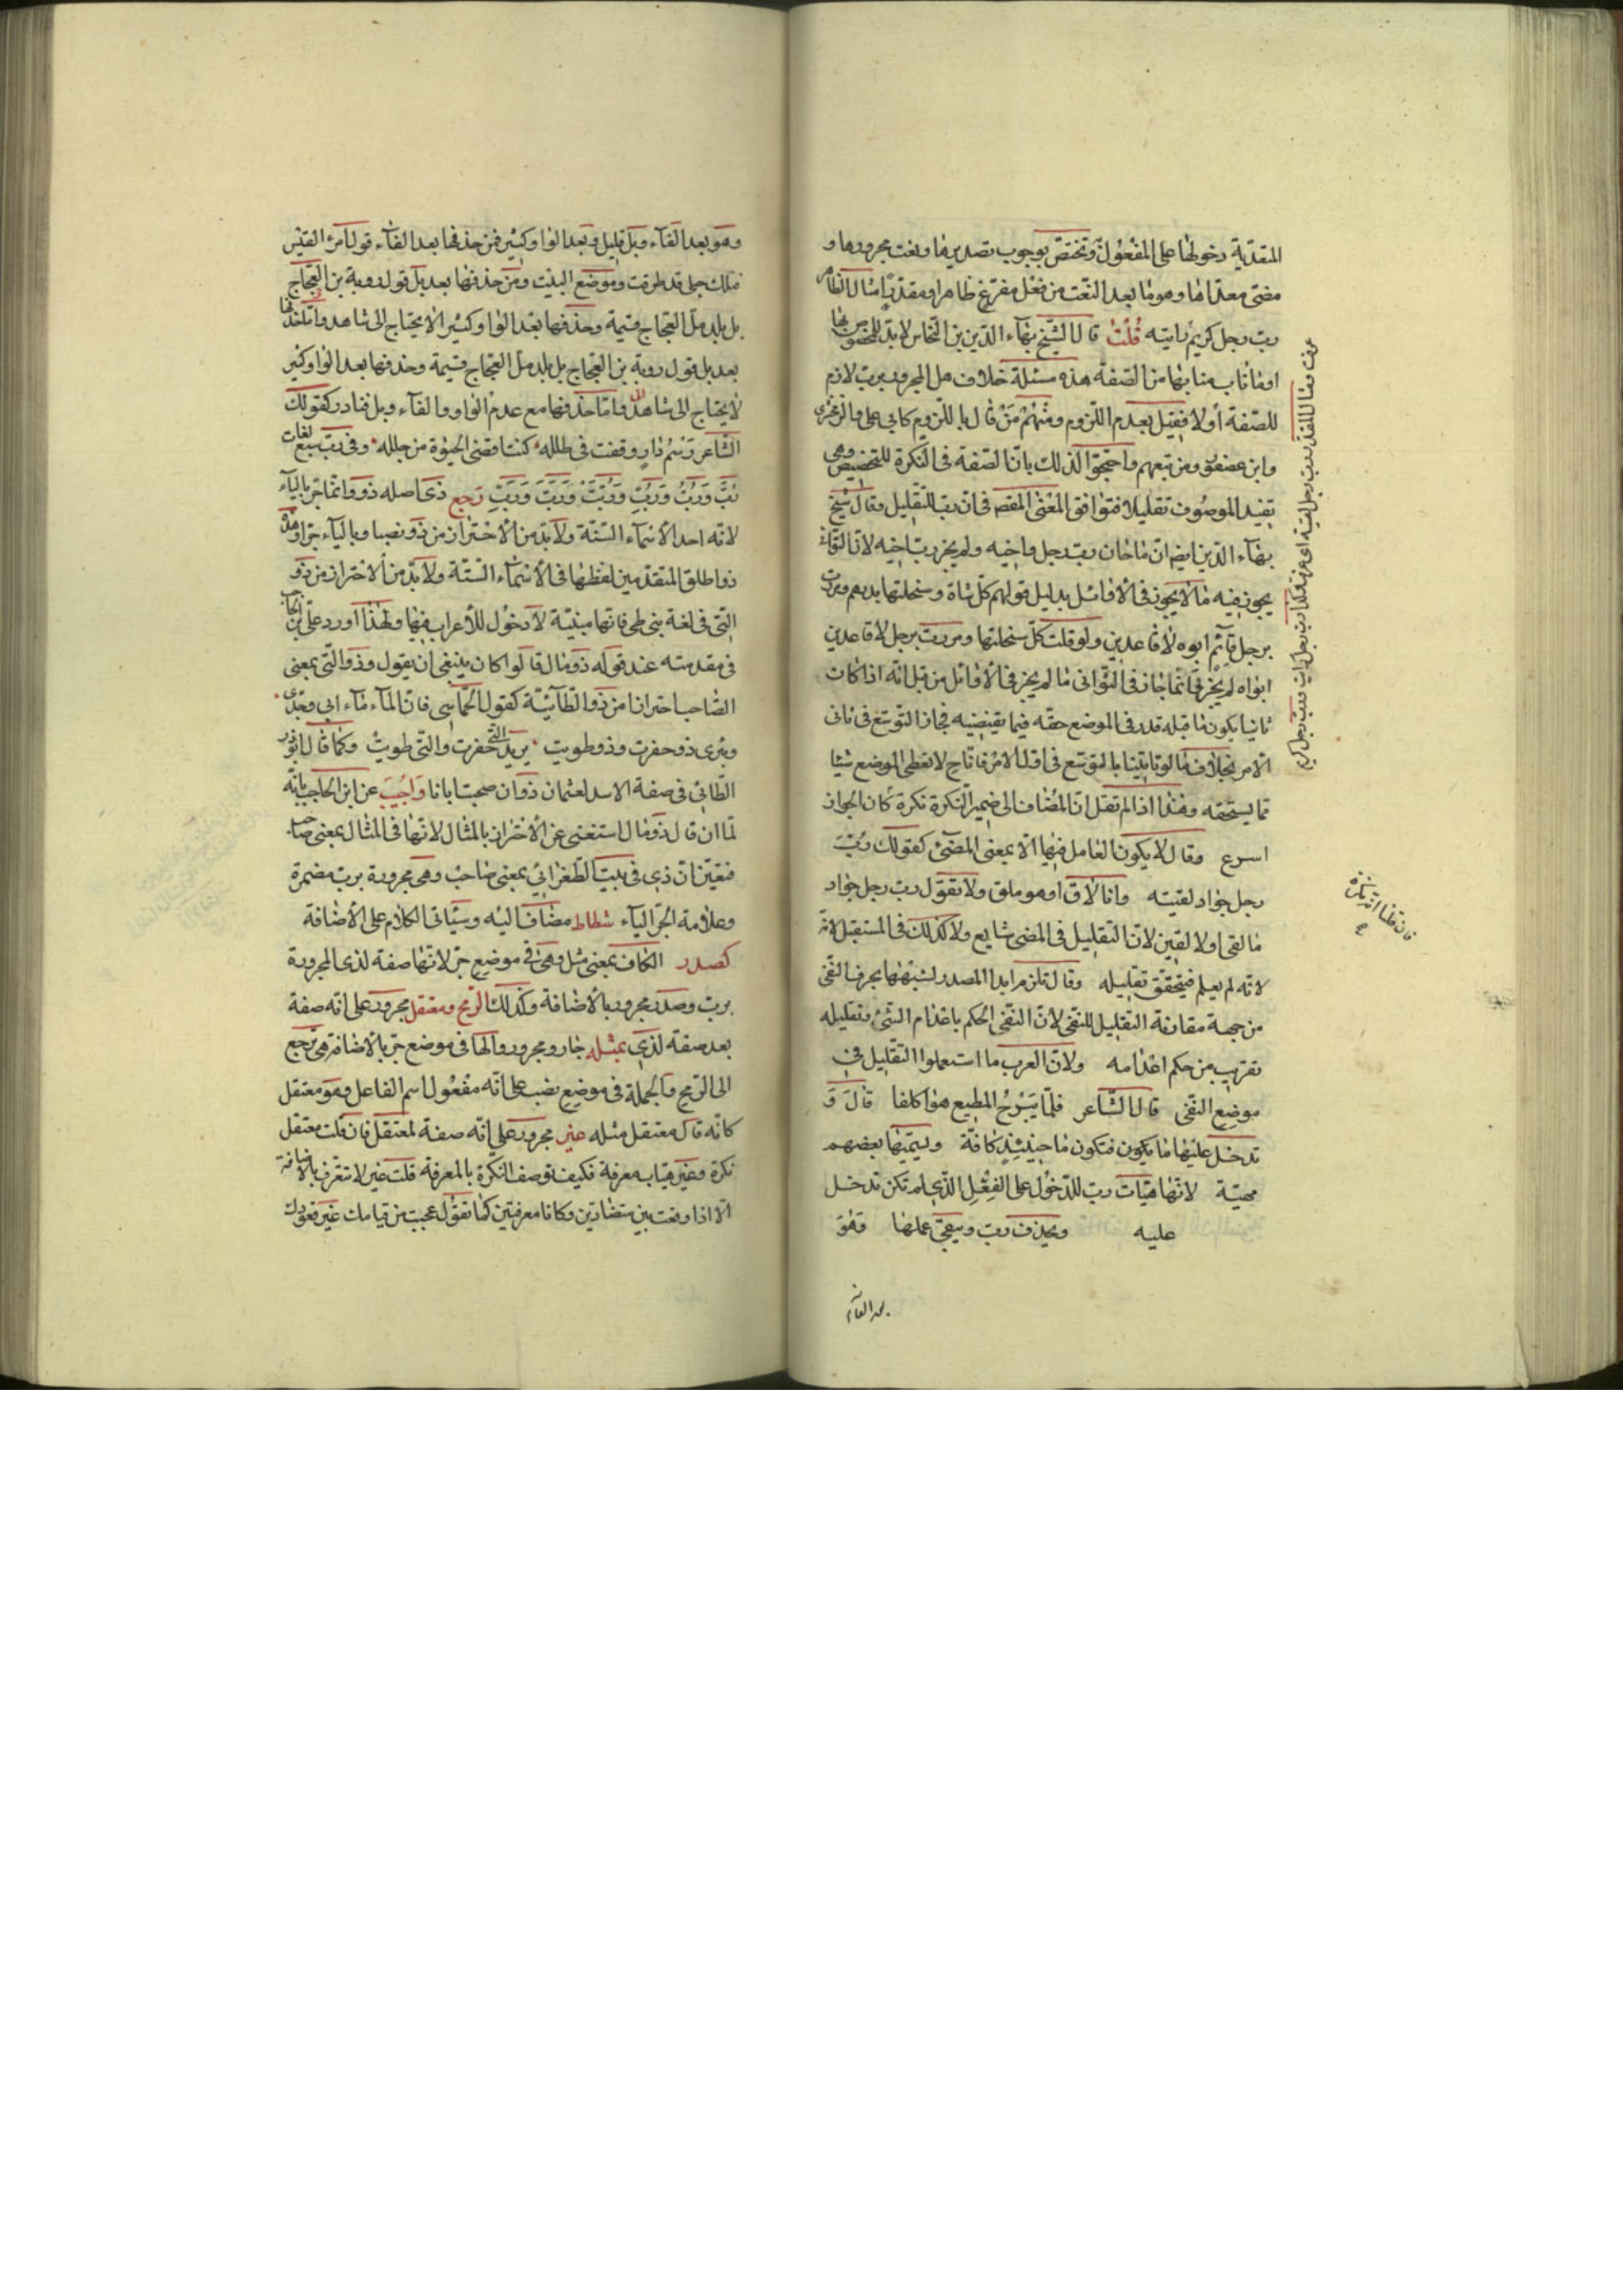 المقدّية دخولها على المفعول وتختص بوجوب تصديرها ونعت مجرورها و
مضى معدّاها وهو ما بعد النعت من فعل مفرغ ظاهرا ومقدرا مثال الظاهر
رب رجل كريم رايته قلت قال الشيخ بهاء الدين بن النحاس لا بد للمخفوض بها
او ما ناب منابها من الصفة هذه مسئلة خلاف هل المجرور برب لازم
للصفة أو لا فقيل بعدم اللزوم ومنهم من قال باللزوم كابي علي والزمخشري
وابن عصفور ومن تبعهم واحتجوا لذلك بان الصفة في النكرة للتخصيص وهي
تفيد الموصوف تقليلا فتوافق المعنى المقصـ في ان رب للتقليل وقال شيخ
بهاء الدين ايضـ ان ما خان رب رجل واخيه ولم يجز رب اخيه لان الثواني
يجوز فيه ما لا يجوز في الأوائل بدليل قولهم كل شاة وسخلتها بدرهم ومررت
برجل قائم ابوه لا قاعدين ولو قلت كل سخلتها ومررت برجل لا قاعدين
ابواه لم يجز فانما جاز في الثواني ما لم يجز في الأوائل من قبل انه اذا كان
ثانيا يكون ما قبله قد وفى الموضع حقه فيما يقتضيه فجاز التوسع في ثاني
الامر بخلاف ما لو اتينا بالتوسع في اول الامر فانا ح لا نعطي الموضع شيئا
مما يستحقه وهذا اذا لم تقل ان المضاف الى ضمير النكرة نكرة كان الجواز
اسرع وقال لا يكون العامل فيها الا بمعنى المضي كقولك رب
رجل جواد لقيته وانا لاق او هو ملق ولا تقول رب رجل جواد
ما لقى او لالقين لان التقليل في المضي شايع ولا كذلك في المستقبل لانه
لانه لم يعلم فيتحقق تقليله وقال تلزم ابدا المصدر لشبهها بحرف النفي
من جهة مقاربة التقليل للنفي لان النفي الحكم باعدام الشئ وتقليله
تقريب من حكم اعدامه ولان العرب ما استعملوا التقليل في
موضع النفي قال الشاعر فلما يبرح المطيع هواكلفا قال و
تدخل عليها ما يكون فتكون ما حينئذ كافة ويسميها بعضهم
مهيئة لانها هيات رب للدخول على الفعل الذي لم تكن تدخل
عليه ويحذف رب ويبقى عملها وهو
بعد الفاء
فان قلنا انه نكرة
وهو بعد الفاء وبل قليل وبعد الواو كثير فمن حذفها بعد الفاء قول امرء القيس
فمثلك حبلى قد طرقت وموضع البيت ومن حذفها بعد بل قول روبة بن العجاج
بل بلد مل العجاج قتمه وحذفها بعد الواو كثير لا يحتاج الى شاهد واما حذفها
بعد بل قول روبة بن العجاج بل بلد مل العجاج قتمه وحذفها بعد الواو كثير
لا يحتاج الى شاهد واما حذفها مع عدم الواو والفاء وبل فنادر كقولك
الشاعر رسم دار وقفت في طلله كنت اقضى الحيوة من جلله وفي رب سبع لغات
رب ورب ورب وربت وربت وربت رجع ذي اصله ذو وانما جر بالياء
لانه احد الأسماء الستة ولا بد من الاحتراز من ذو نصبا وبالياء جرا وهذه
ذو اطلق المتقدمين لفظها في الأسماء الستة ولا بد من الاحتراز من ذو
التي في لغة بني طي فانها مبنية لا دخول للأعراب فيها ولهذا اورد على ابن الحاجب
في مقدمته عند قوله ذو مال قالوا كان ينبغي ان يقول وذو التي بمعنى
الصاحب احترازا من ذو الطائية كقول الحماسي فان الماء ماء ابي وجدي
وبئري ذو حفرت وذو طويت يريد التي حفرت والتي طويت وكما قال ابو
الطائي في صفة الاسد لعثمان ذو ان صحبت ابانا واجيب عن ابن الحاجب بانه
لما ان قال ذو مال استغنى عن الأحتراز بالمثال لانها في المثال بمعنى صاحب
فتعين ان ذي في بيت الطغرائي بمعنى صاحب وهي مجرورة برب مضمرة
وعلامة الجر الياء شطاط مضاف اليه وسيأتي الكلام على الأضافة
كصدر الكاف بمعنى مثل وهي في موضع جر لانها صفة لذى المجرورة
برب وصدر مجرور بالأضافة وكذلك الرمح ومعتقل مجرور على انه صفة
بعد صفة لذي بمثله جار ومجرور والها في موضع جر بالأضافة هي ترجع
الى الرمح والجملة في موضع نصب على انه مفعول اسم الفاعل وهو معتقل
كانه قال معتقل مثله غير مجرور على انه صفة لمعتقل فان قلت معتقل
نكرة وغير هياب معرفة فكيف توصف النكرة بالمعرفة قلت غير لا تتعرف بالاضافة
الا اذا وقعت بين متضادين وكانا معرفتين كما تقول عجبت من قيامك غير قعودك